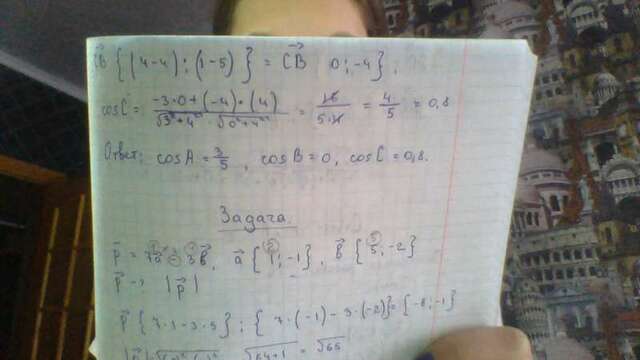 CB { (4-4) ; (1-5) } = CB { 0 ; -4 } ;
cosC = (-3·0+(-4)·(4)) / (√3²+4² · √0²+4²) = 16 / 5·4 = 4/5 = 0,8
Ответ: cosA = 3/5, cosB = 0, cosC = 0,8.
Задача.
p = 7a - 3b, a { 1; -1 }, b { 5; -2 }
p → |p|
p { 7·1-3·5 } ; { 7·(-1)-3·(-2) } = { -8; -1 }
√64+1 = √65